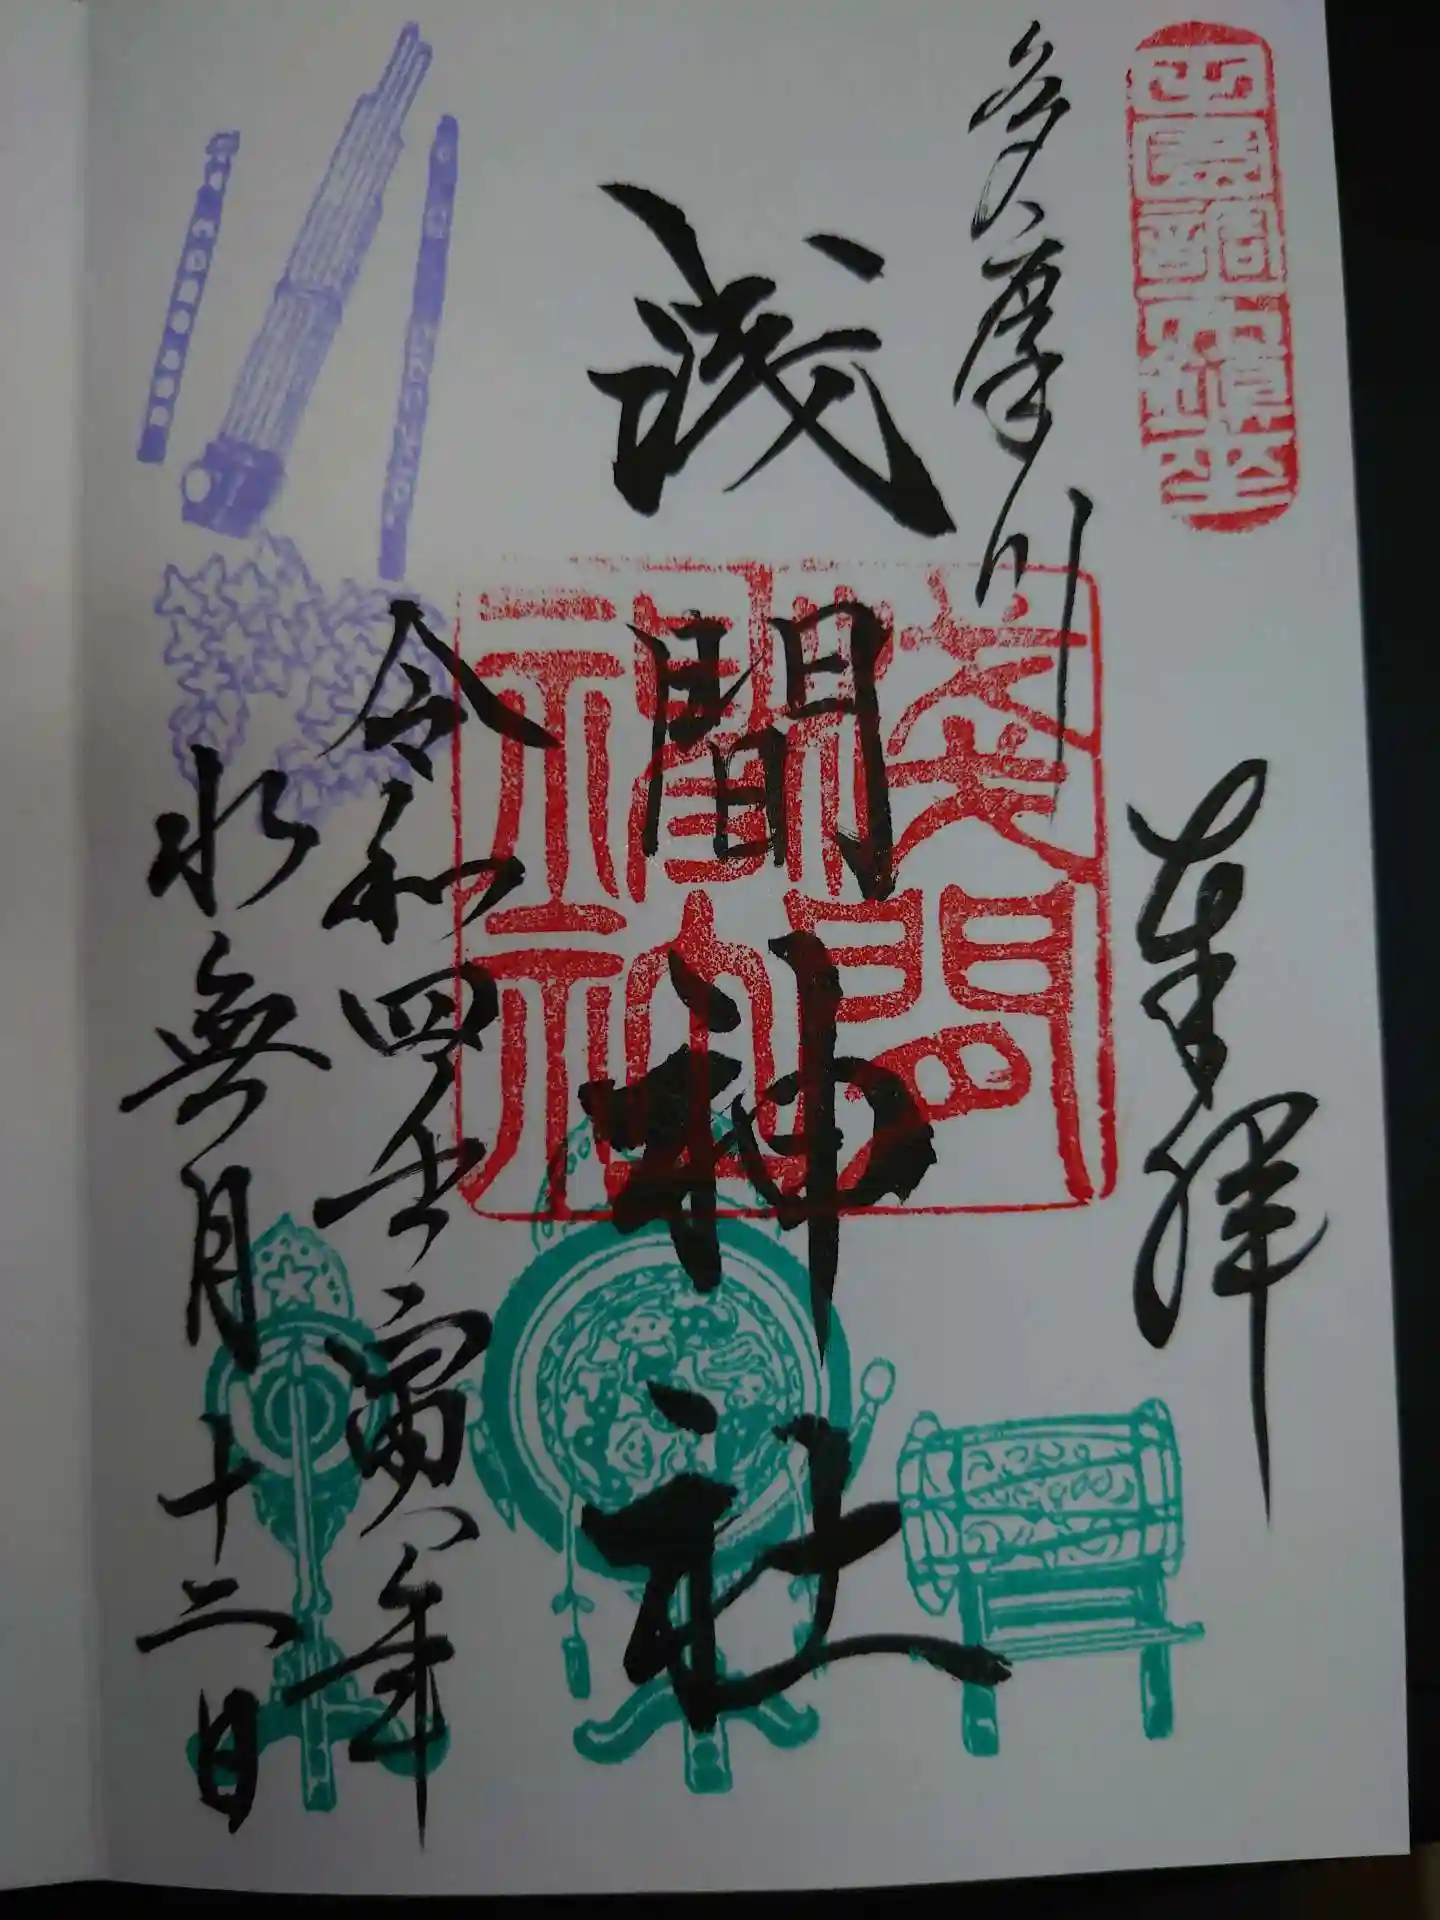 奉拝
多摩川
浅間神社
浅間神社
令和四壬寅年
水無月十二日